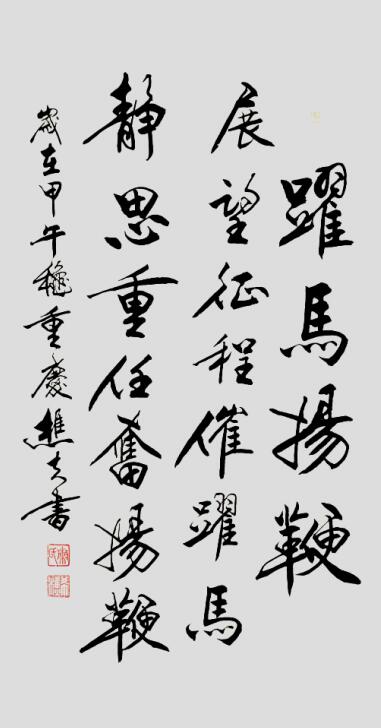 躍馬揚鞭
展望征程催躍馬
靜思重任奮揚鞭
歲在甲午龝重慶樵夫書